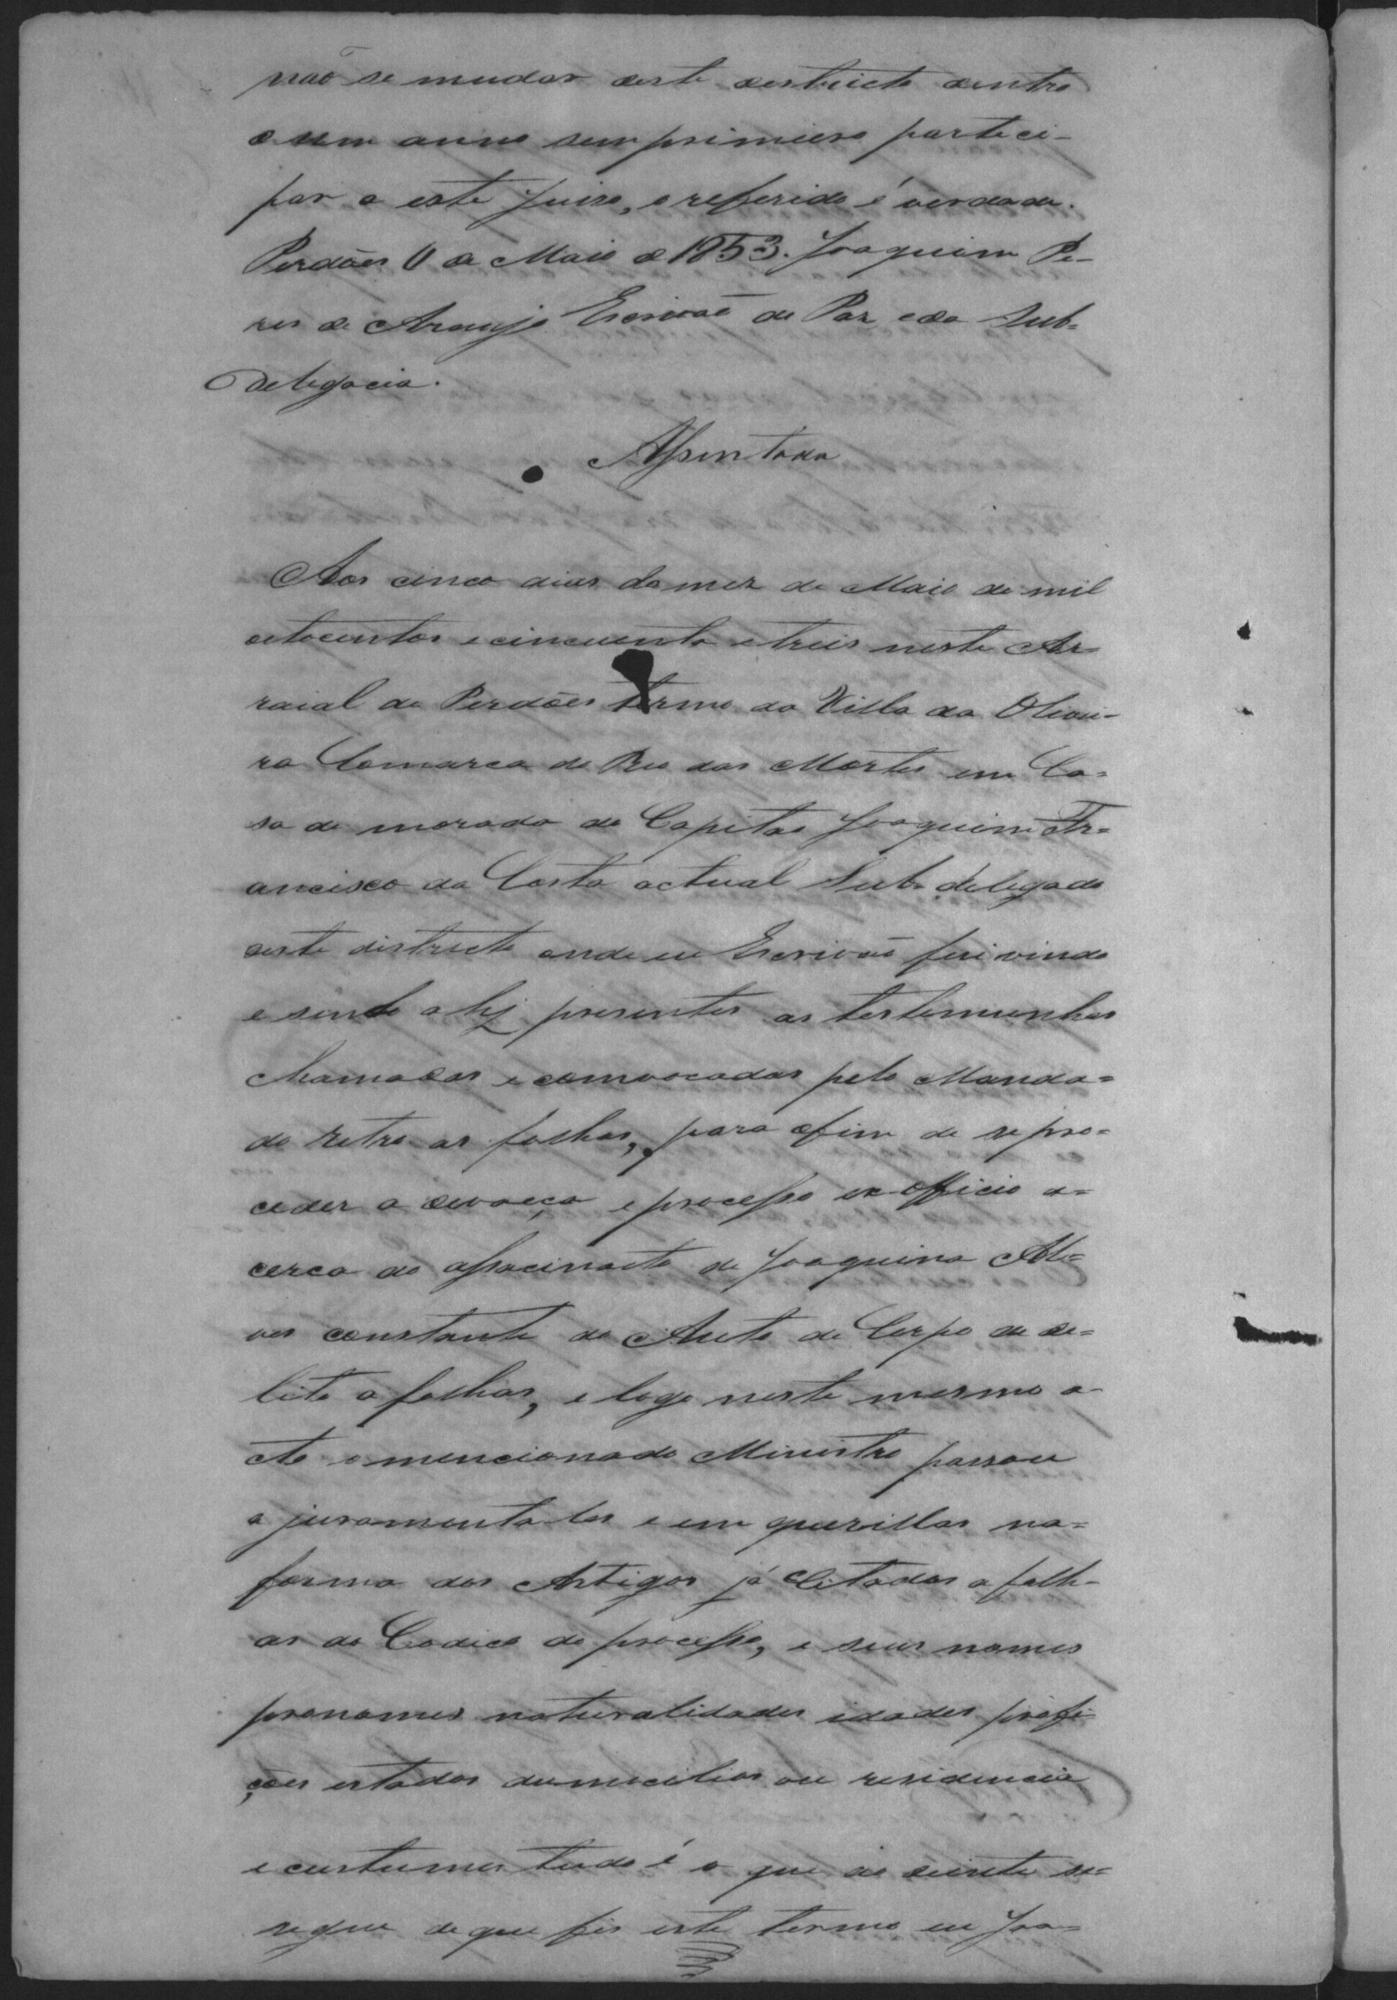 não se mudar deste destricto dentro
d um anno sem primiero parteci-
par a este Juiso, o referido é verdade.
Perdões de Maio d 1853. Joaquim Pe-
res de Araujo Escrivaõ de Paz e da Sub-
delegacia.
Assentada
Aos cinco dias do mez de Maio de mil
oitocentos e cincuenta e treis neste Ar-
raial de Perdões termo da Villa da Olivei-
ra Comarca do Rio das Mortes em Ca-
sa de morada do Capitao Joaquim Fr-
ancisco da Costa actual Sub-delegado
deste districto onde eu Escrivaõ fui vindo
e sendo ahj presentes as testemunhas
chamadas e comvocadas pelo Manda-
do retro as folhas, para efim de se pro-
ceder a devaça e processo ex officio a-
cerca do assacinacto de Joaquina Al-
ves constante do Auto de Corpo de de-
licto a folhas, e logo neste mesmo a-
cto o mencionado Ministro passou
a juramenta-las e em querillas na-
forma dos Artigos já Citados a folh-
as do Codico do processo, e seus nomes
pronomes naturalidades idades profi-
ções estados dumicilios ou residencia
e custumes tudo é o que ao diente se-
segue de que fis este termo eu Joa-